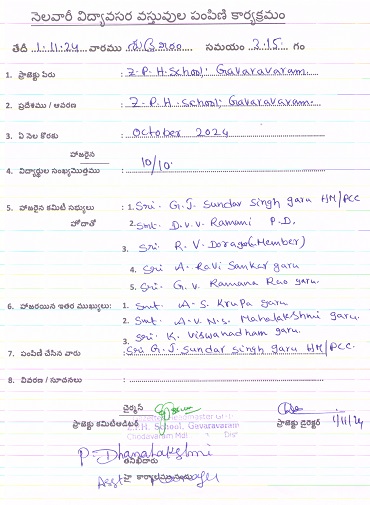 నెలవారీ విద్యావసర వస్తువుల పంపిణి కార్యక్రమం
తేదీ 1.11.24 వారము శుక్రవారం సమయం 3:15 గం
1. ప్రాజెక్టు పేరు : Z.P.H.School; Gavaravaram.
2. ప్రదేశము / ఆవరణ : Z.P.H.School; Gavaravaram.
3. ఏ నెల కొరకు : October 2024
హాజరైన
4. విద్యార్థుల సంఖ్య/మొత్తము : 10/10
5. హాజరైన కమిటీ సభ్యులు : 1. Sri. G.J. Sundar Singh garu HM/PCC
హోదాతో 2. Smt. D.V.V. Ramani P.D.
3. Sri. R.V. (Member)
4. Sri A. Ravi Sankar garu
5. Sri. G.V. Ramana Rao garu.
6. హాజరయిన ఇతర ముఖ్యులు: 1. Smt. A.S. Krupa garu
2. Smt. A.V.N.S. Mahalakshmi garu.
3. Sri. K. Viswanadham garu.
7. పంపిణి చేసిన వారు : Sri G.J. Sundar Singh garu HM/PCC.
8. వివరణ / సూచనలు :
చైర్మన్
ప్రాజెక్టు కమిటీ ప్రాజెక్టు డైరెక్టర్ 1/11/24
Z.P.H. School, Gavaravaram
Chodavaram Mdl
P. Dhanalakshmi